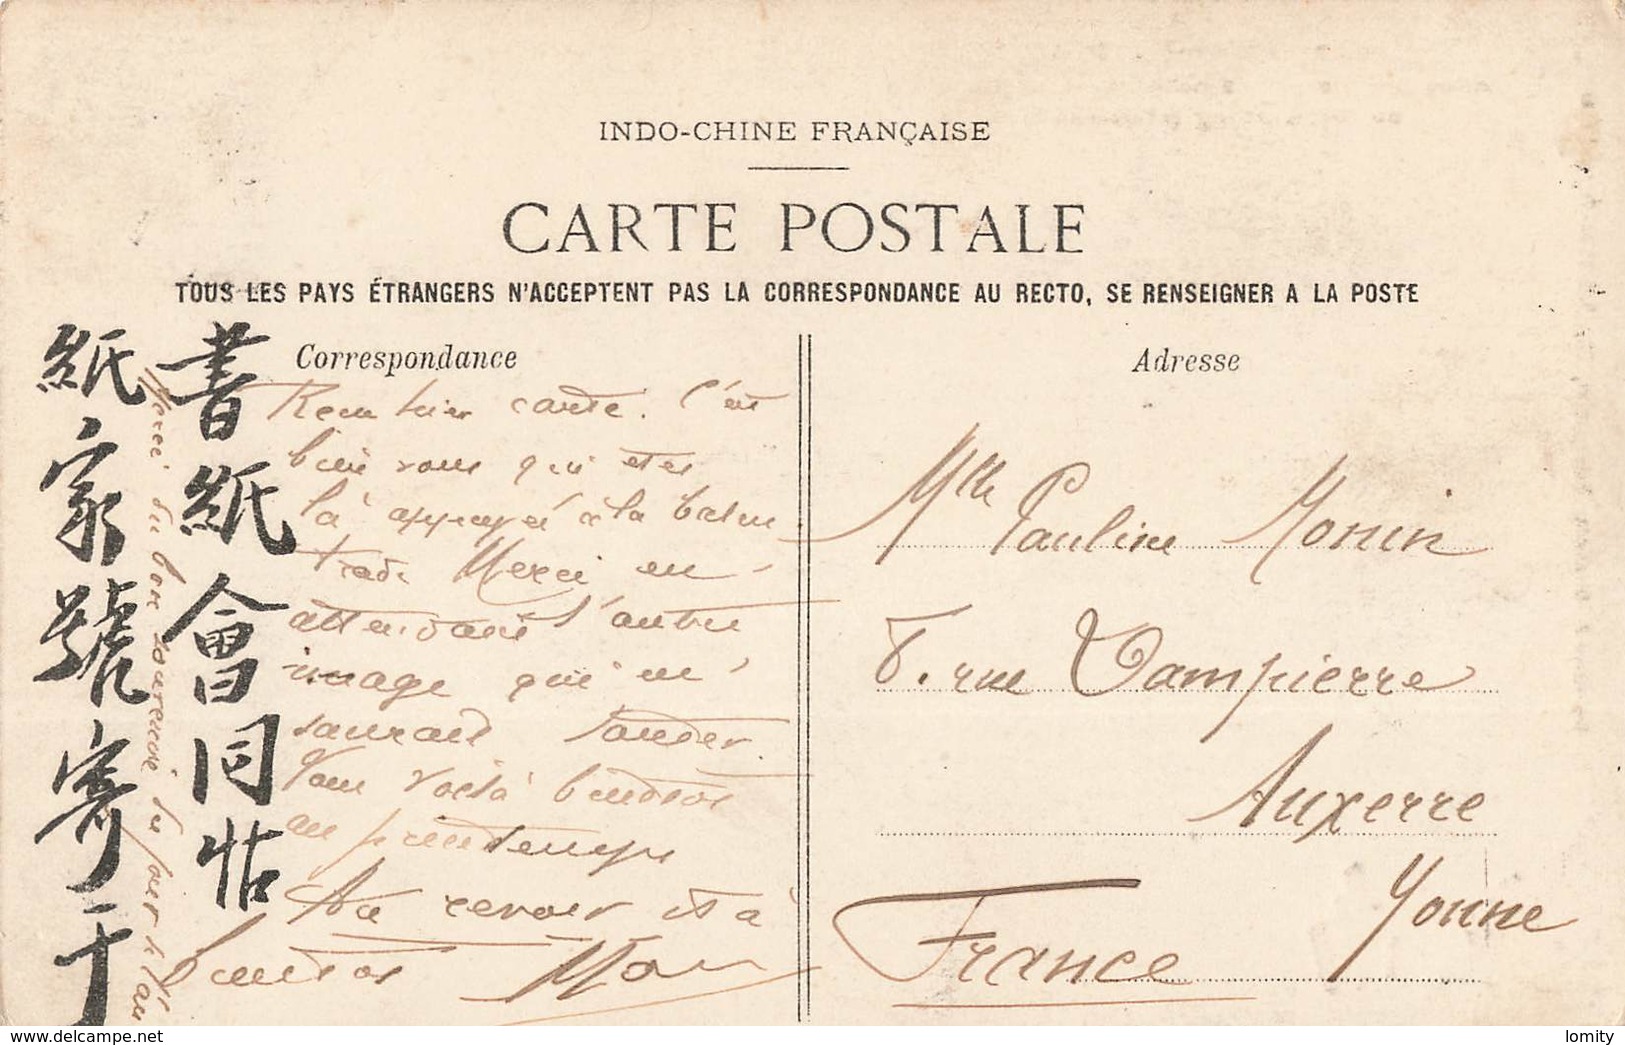 INDO-CHINE FRANÇAISE
CARTE POSTALE
TOUS LES PAYS ÉTRANGERS N'ACCEPTENT PAS LA CORRESPONDANCE AU RECTO, SE RENSEIGNER A LA POSTE
Correspondance
Reçu hier carte. C'est
bien vous qui êtes
là appuyé à la balus
trade Merci en
attendant l'autre
image qui ne
saurait tarder.
Vous voilà bientôt
au printemps
Au revoir et à
bientôt
Merci du bon souvenir du
書紙會同帖
紙家號寄于
Adresse
Mlle Pauline Monin
8. rue Dampierre
Auxerre
Yonne
France
delcampe.net
lomity